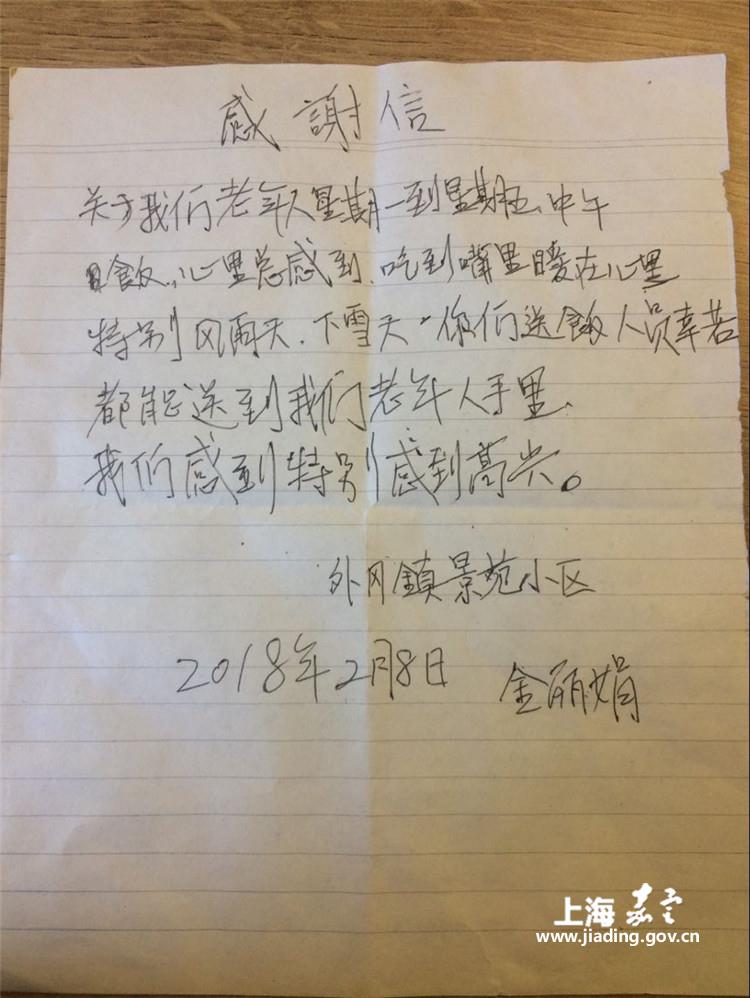 感謝信
关于我们老年人星期一到星期五、中午
飯，心里总感到、吃到嘴里暖在心里
特别风雨天、下雪天，你们送飯人员辛苦
都能送到我们老年人手里、
我们感到特别感到高兴。
外冈鎮景苑小区
2018年2月8日 金丽娟
上海嘉定
www.jiading.gov.cn